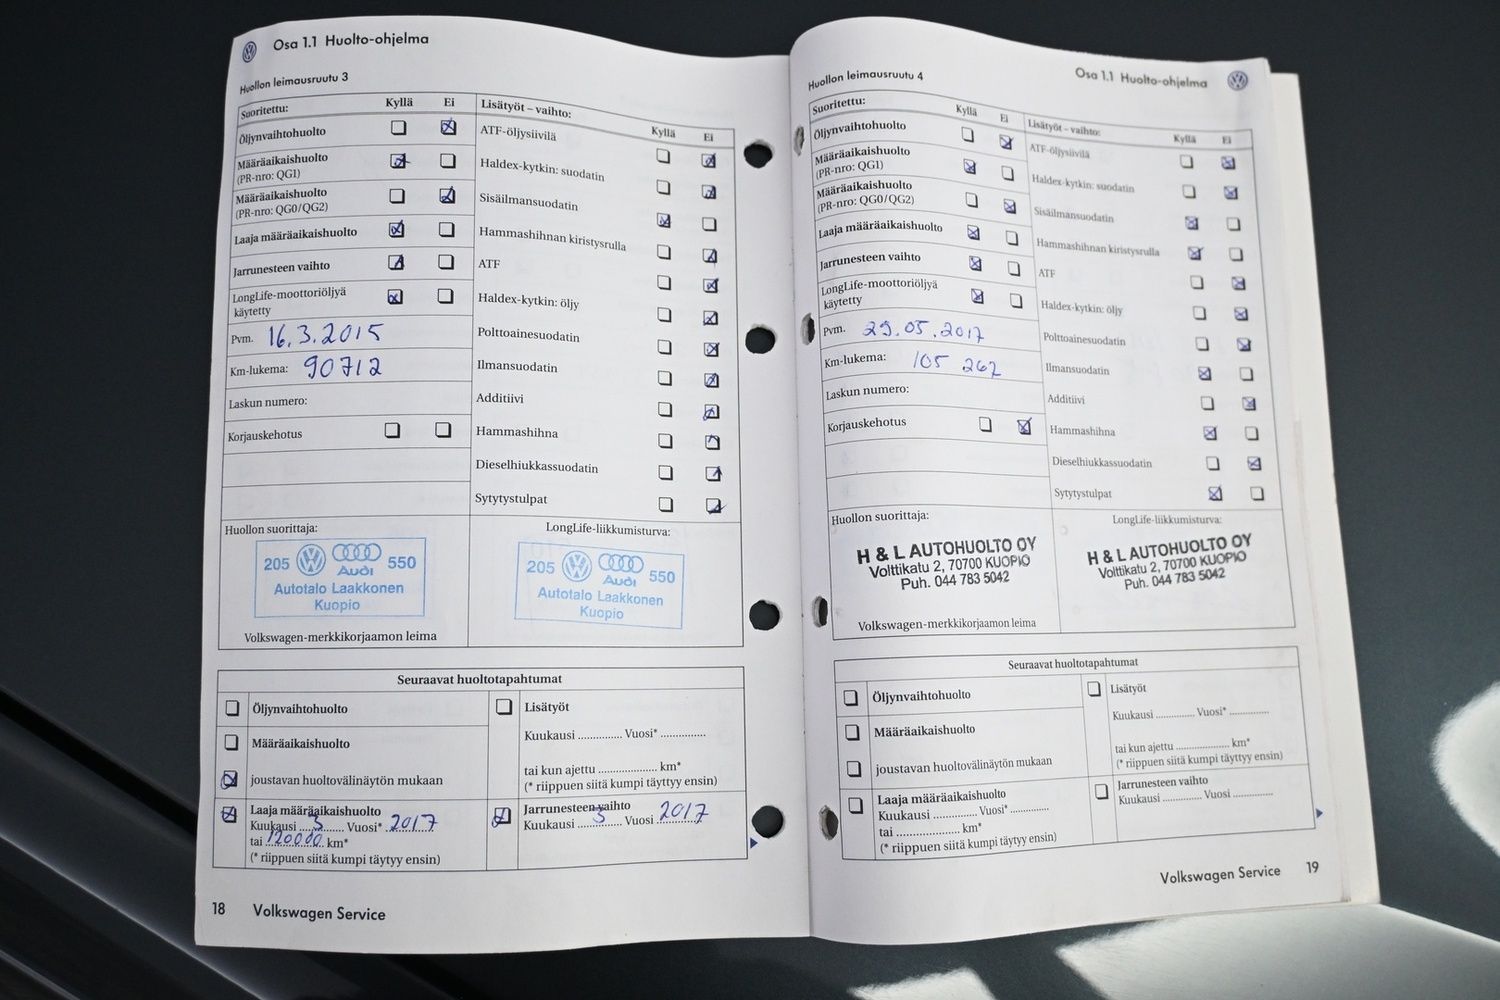 Osa 1.1 Huolto-ohjelma
Huollon leimausruutu 3
Suoritettu: Kyllä Ei
Öljynvaihtohuolto
Määräaikaishuolto
(PR-nro: QG1)
Määräaikaishuolto
(PR-nro: QG0/QG2)
Laaja määräaikaishuolto
Jarrunesteen vaihto
LongLife-moottoriöljyä
käytetty
Pvm. 16.3.2015
Km-lukema: 90712
Laskun numero:
Korjauskehotus
Lisätyöt – vaihto:
Kyllä Ei
ATF-öljysiivilä
Haldex-kytkin: suodatin
Sisäilmansuodatin
Hammashihnan kiristysrulla
ATF
Haldex-kytkin: öljy
Polttoainesuodatin
Ilmansuodatin
Additiivi
Hammashihna
Dieselhiukkassuodatin
Sytytystulpat
Huollon suorittaja:
205 Audi 550
Autotalo Laakkonen
Kuopio
Volkswagen-merkkikorjaamon leima
LongLife-liikkumisturva:
205 Audi 550
Autotalo Laakkonen
Kuopio
Seuraavat huoltotapahtumat
Öljynvaihtohuolto
Määräaikaishuolto
joustavan huoltovälinäytön mukaan
Laaja määräaikaishuolto
Kuukausi 3 Vuosi* 2017
tai 120000 km*
(* riippuen siitä kumpi täytyy ensin)
Lisätyöt
Kuukausi .............. Vuosi* ..............
tai kun ajettu .................... km*
(* riippuen siitä kumpi täyttyy ensin)
Jarrunesteen vaihto
Kuukausi 3 Vuosi 2017
18 Volkswagen Service
Osa 1.1 Huolto-ohjelma
Huollon leimausruutu 4
Suoritettu: Kyllä Ei
Öljynvaihtohuolto
Määräaikaishuolto
(PR-nro: QG1)
Määräaikaishuolto
(PR-nro: QG0/QG2)
Laaja määräaikaishuolto
Jarrunesteen vaihto
LongLife-moottoriöljyä
käytetty
Pvm. 29.05.2017
Km-lukema: 105 262
Laskun numero:
Korjauskehotus
Lisätyöt – vaihto:
Kyllä Ei
ATF-öljysiivilä
Haldex-kytkin: suodatin
Sisäilmansuodatin
Hammashihnan kiristysrulla
ATF
Haldex-kytkin: öljy
Polttoainesuodatin
Ilmansuodatin
Additiivi
Hammashihna
Dieselhiukkassuodatin
Sytytystulpat
Huollon suorittaja:
H & L AUTOHUOLTO OY
Volttikatu 2, 70700 KUOPIO
Puh. 044 783 5042
Volkswagen-merkkikorjaamon leima
LongLife-liikkumisturva:
H & L AUTOHUOLTO OY
Volttikatu 2, 70700 KUOPIO
Puh. 044 783 5042
Seuraavat huoltotapahtumat
Öljynvaihtohuolto
Määräaikaishuolto
joustavan huoltovälinäytön mukaan
Laaja määräaikaishuolto
Kuukausi .............. Vuosi* ..............
tai .................... km*
(* riippuen siitä kumpi täytyy ensin)
Lisätyöt
Kuukausi .............. Vuosi* ..............
tai kun ajettu .................... km*
(* riippuen siitä kumpi täyttyy ensin)
Jarrunesteen vaihto
Kuukausi .............. Vuosi ..............
Volkswagen Service 19